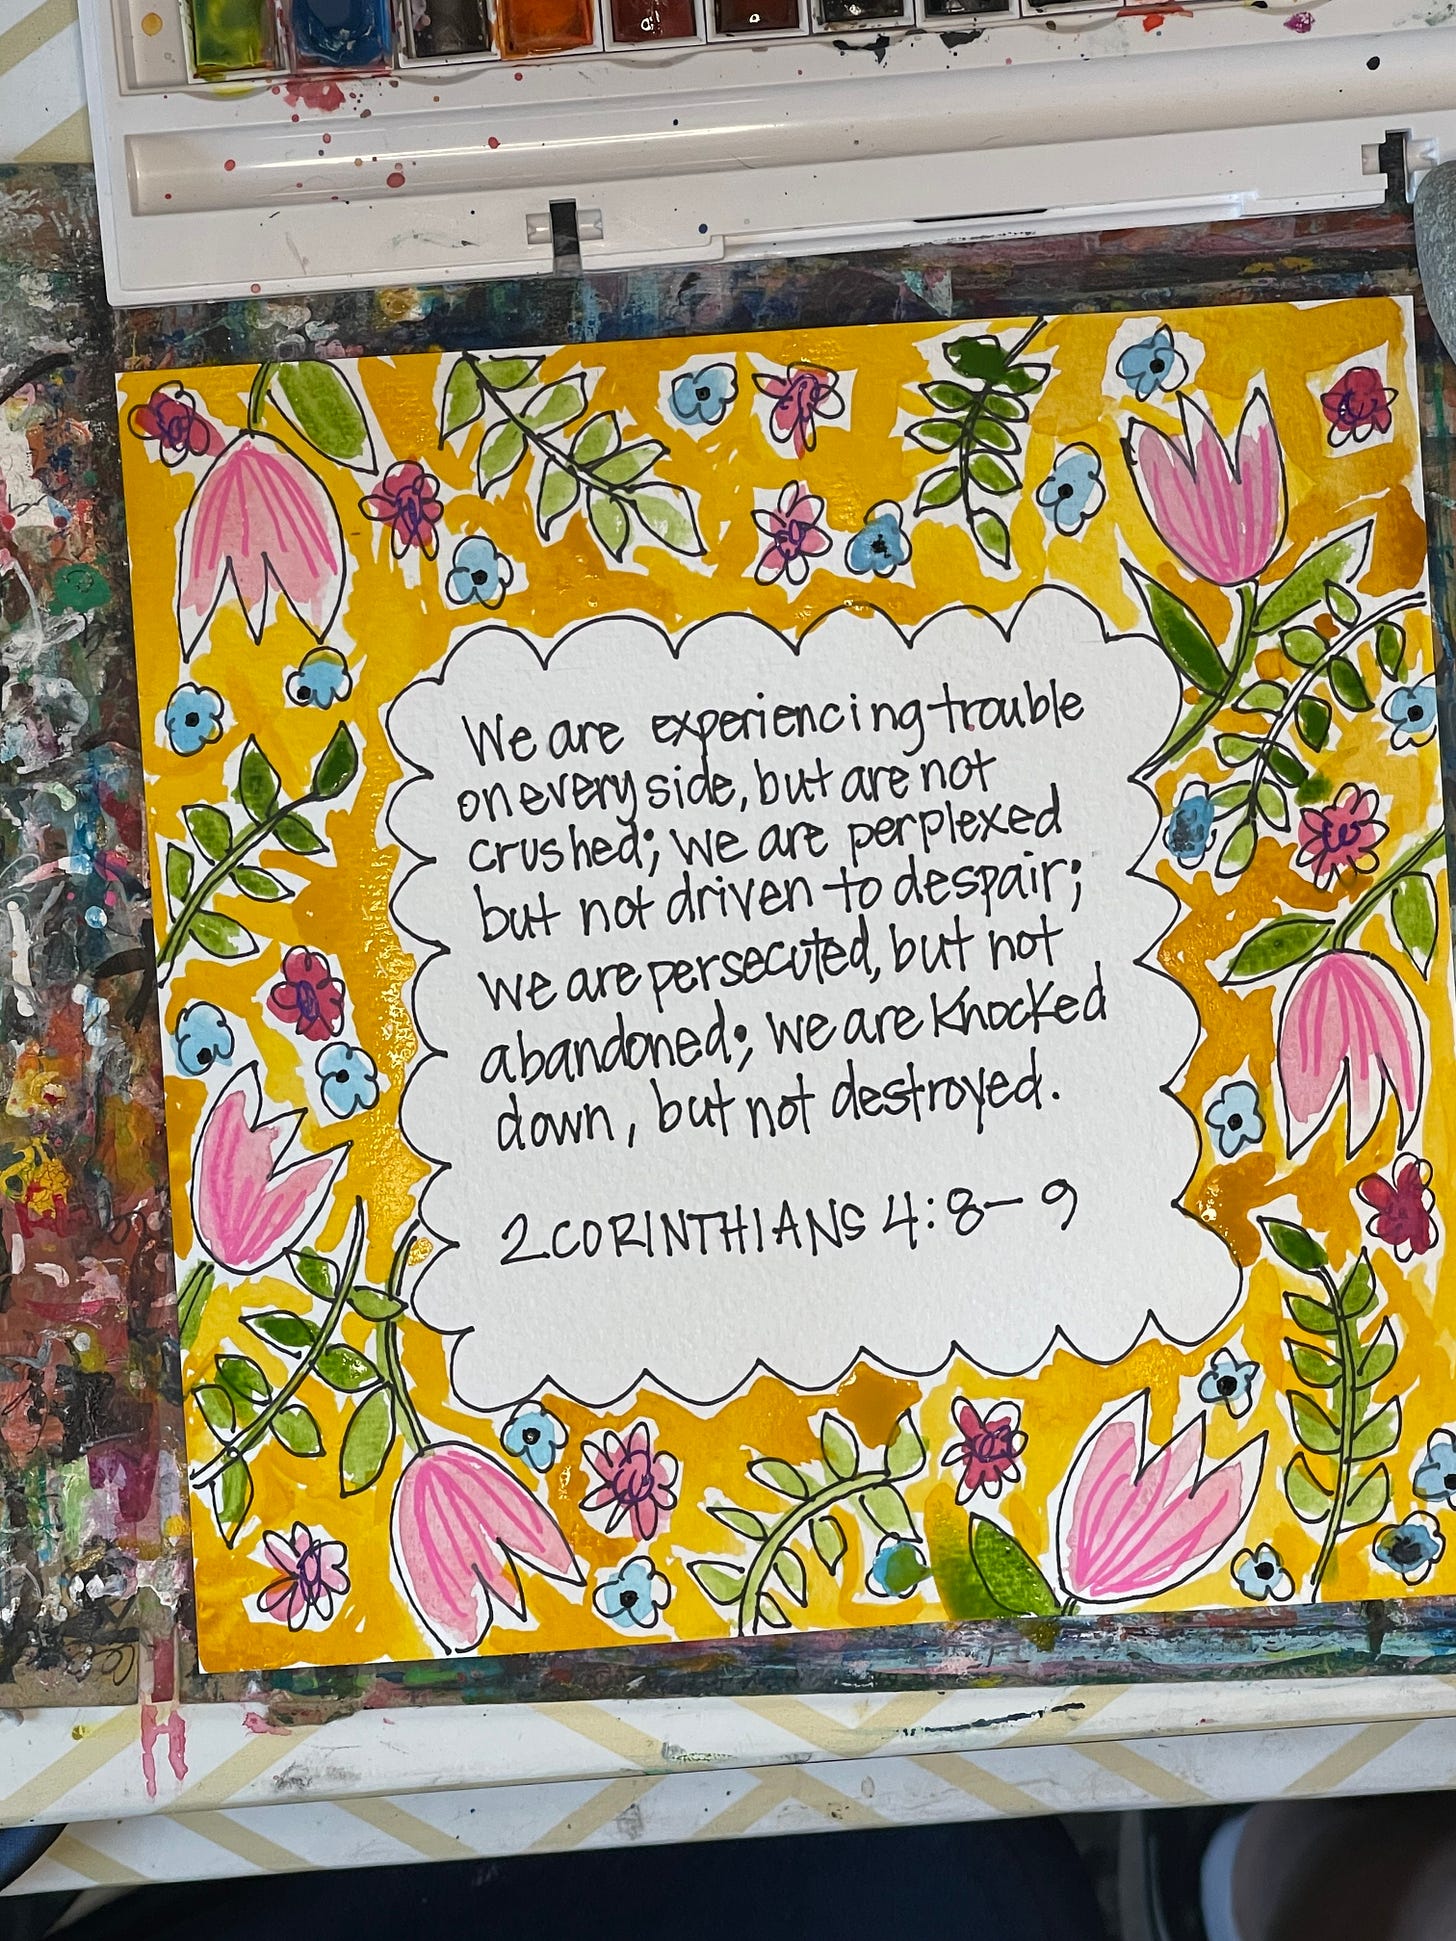 We are experiencing trouble
on every side, but are not
crushed; we are perplexed
but not driven to despair;
we are persecuted, but not
abandoned; we are knocked
down, but not destroyed.
2 CORINTHIANS 4:8-9